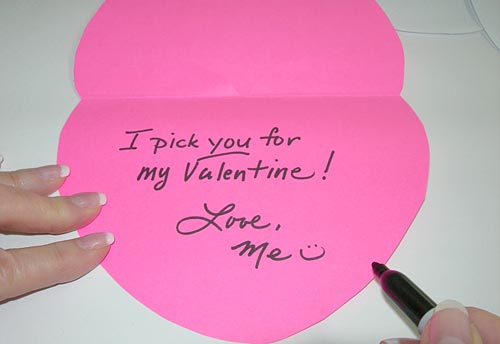 I pick you for
my Valentine!
Love,
Me☺